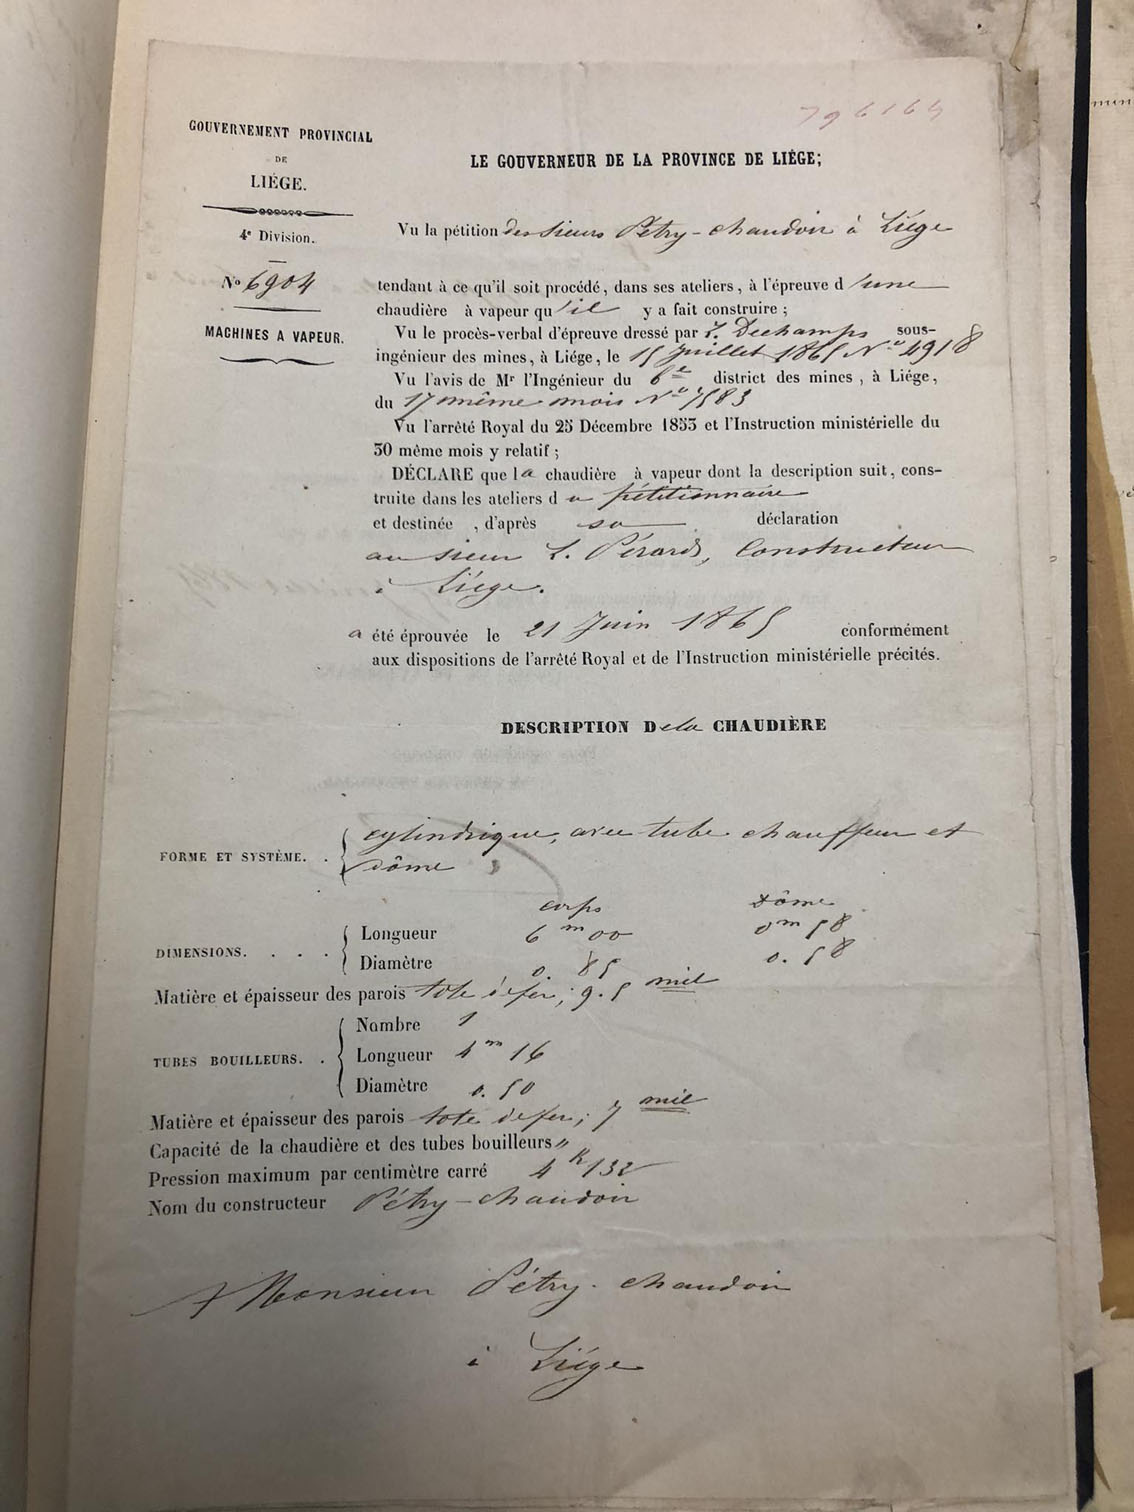 796164
GOUVERNEMENT PROVINCIAL
DE
LIÉGE.
4e Division.
No 6904
MACHINES A VAPEUR.
LE GOUVERNEUR DE LA PROVINCE DE LIÉGE;
Vu la pétition des sieurs Pétry-Chaudoir à Liége
tendant à ce qu'il soit procédé, dans ses ateliers, à l'épreuve d'une
chaudière à vapeur qu'il y a fait construire;
Vu le procès-verbal d'épreuve dressé par Dechamps sous-
ingénieur des mines, à Liége, le 15 Juillet 1865 No 4918
Vu l'avis de Mr l'Ingénieur du 6e district des mines, à Liége,
du 17 même mois No 7583
Vu l'arrêté Royal du 25 Décembre 1853 et l'Instruction ministérielle du
30 même mois y relatif;
DÉCLARE que la chaudière à vapeur dont la description suit, cons-
truite dans les ateliers du pétitionnaire
et destinée, d'après sa déclaration
au sieur L. Pérard, Constructeur
à Liége.
a été éprouvée le 21 Juin 1865 conformément
aux dispositions de l'arrêté Royal et de l'Instruction ministérielle précités.
DESCRIPTION De la CHAUDIÈRE
FORME ET SYSTÈME. . cylindrique, avec tube chauffeur et
dôme
corps Dôme
DIMENSIONS. . . . Longueur 6m 00 0m 58
Diamètre 0. 85 0. 58
Matière et épaisseur des parois tole de fer; 9.5 mil
TUBES BOUILLEURS. . Nombre 1
Longueur 4m 16
Diamètre 0. 50
Matière et épaisseur des parois tole de fer; 7 mil
Capacité de la chaudière et des tubes bouilleurs "
Pression maximum par centimètre carré 4K 132
Nom du constructeur Pétry-Chaudoir
A Monsieur Pétry-Chaudoir
à Liége